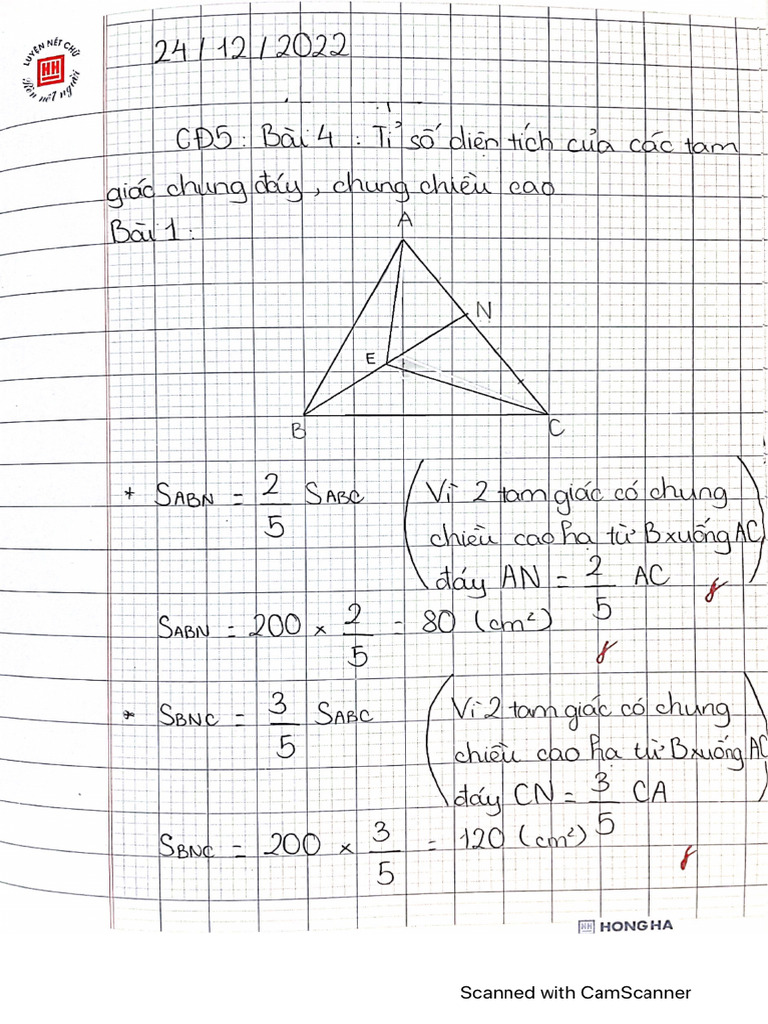 LUYỆN NÉT CHỮ
HH
Rèn nết người
24/12/2022
CĐ5: Bài 4: Tỉ số diện tích của các tam
giác chung đáy, chung chiều cao
Bài 1:
A
N
E
B
C
+ SABN = 2/5 SABC (Vì 2 tam giác có chung
chiều cao hạ từ B xuống AC
đáy AN = 2/5 AC)
SABN = 200 × 2/5 = 80 (cm²)
* SBNC = 3/5 SABC (Vì 2 tam giác có chung
chiều cao hạ từ B xuống AC
đáy CN = 3/5 CA)
SBNC = 200 × 3/5 = 120 (cm²)
HH HONG HA
Scanned with CamScanner